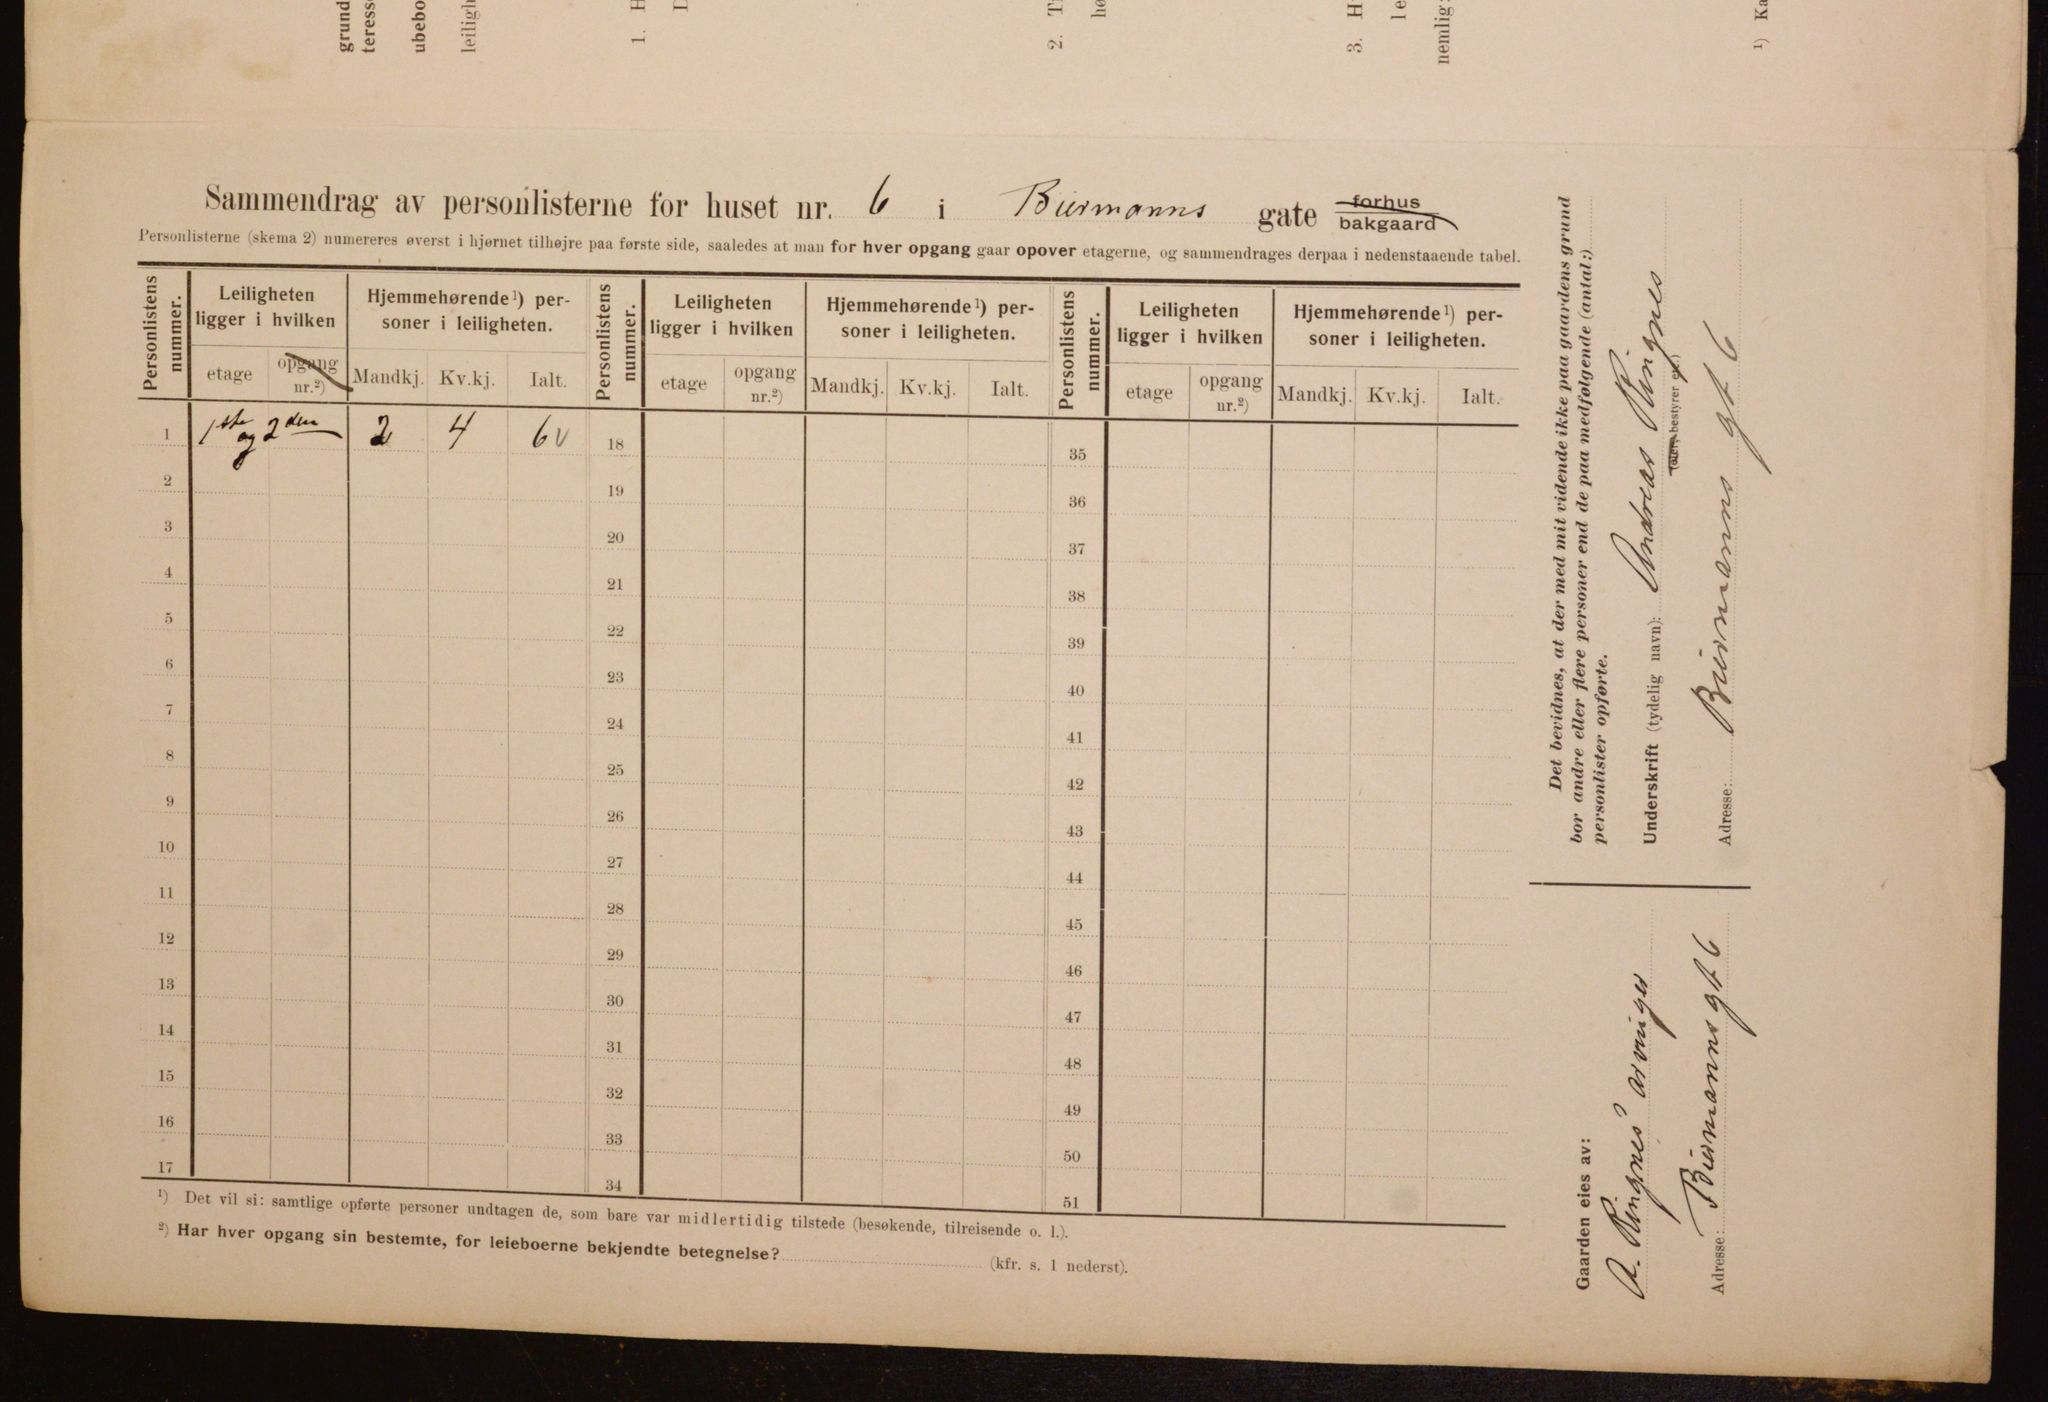 grund
teress
ubebo
leiligh
1. H
D
2. T
hø
3. H
le
nemlig:
¹) Ka
Sammendrag av personlisterne for huset nr. 6 i Biermanns gate forhus bakgaard
Personlisterne (skema 2) numereres øverst i hjørnet tilhøjre paa første side, saaledes at man for hver opgang gaar opover etagerne, og sammendrages derpaa i nedenstaaende tabel.
Personlistens nummer.
Leiligheten ligger i hvilken
etage
opgang nr.²)
Hjemmehørende¹) personer i leiligheten.
Mandkj.
Kv.kj.
Ialt.
Personlistens nummer.
Leiligheten ligger i hvilken
etage
opgang nr.²)
Hjemmehørende¹) personer i leiligheten.
Mandkj.
Kv.kj.
Ialt.
Personlistens nummer.
Leiligheten ligger i hvilken
etage
opgang nr.²)
Hjemmehørende¹) personer i leiligheten.
Mandkj.
Kv.kj.
Ialt.
1 1ste og 2den 2 4 6 v 18 35
2 19 36
3 20 37
4 21 38
5 22 39
6 23 40
7 24 41
8 25 42
9 26 43
10 27 44
11 28 45
12 29 46
13 30 47
14 31 48
15 32 49
16 33 50
17 34 51
¹) Det vil si: samtlige opførte personer undtagen de, som bare var midlertidig tilstede (besøkende, tilreisende o. l.).
²) Har hver opgang sin bestemte, for leieboerne bekjendte betegnelse? (kfr. s. 1 nederst).
Det bevidnes, at der med mit vidende ikke paa gaardens grund
bor andre eller flere personer end de paa medfølgende (antal:)
personlister opførte.
Underskrift (tydelig navn): Andreas Ringnes
(eier, bestyrer etc.)
Adresse: Biermanns gt 6
Gaarden eies av:
A. Ringnes' arvinger
Adresse: Biermanns gt 6